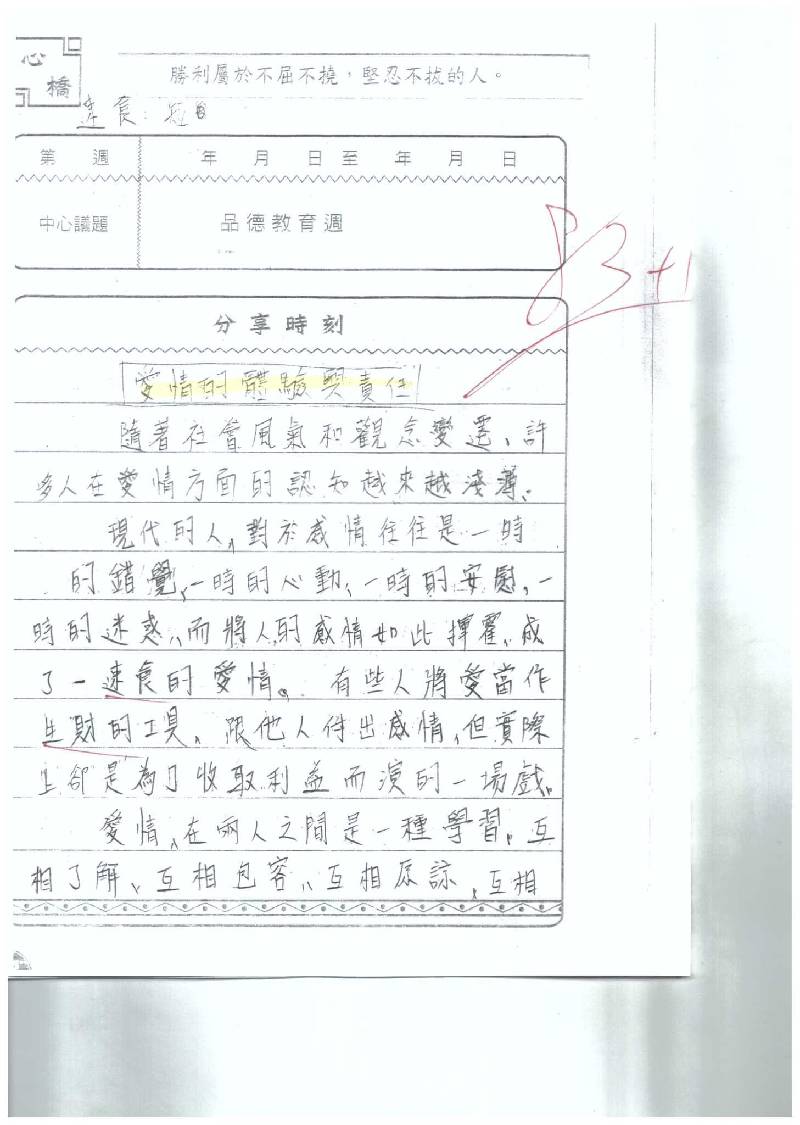 心橋
勝利屬於不屈不撓，堅忍不拔的人。
速食:短
第 週 年 月 日 至 年 月 日
中心議題 品德教育週
83+1
分享時刻
愛情的體驗與責任
隨著社會風氣和觀念變遷、許
多人在愛情方面的認知越來越淺薄.
現代的人、對於感情往往是一時
的錯覺、一時的心動、一時的安慰、一
時的迷惑、而將人的感情如此揮霍、成
了一速食的愛情。有些人將愛當作
生財的工具、跟他人付出感情、但實際
上卻是為了收取利益而演的一場戲。
愛情、在兩人之間是一種學習、互
相了解、互相包容、互相原諒、互相